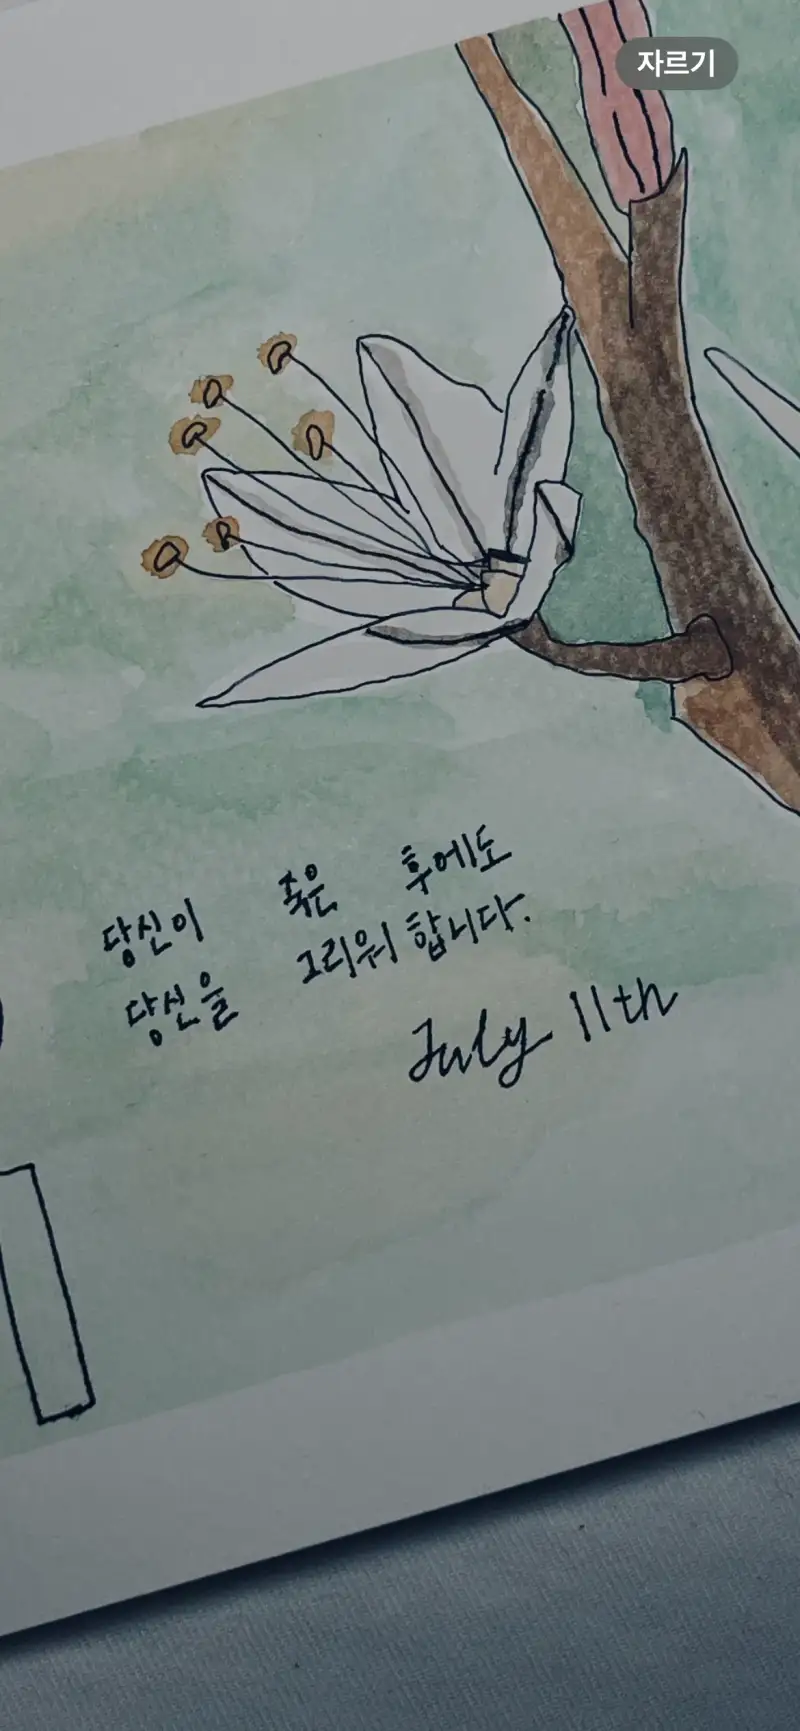 자르기
당신이 죽은 후에도
당신을 그리워 합니다.
July 11th